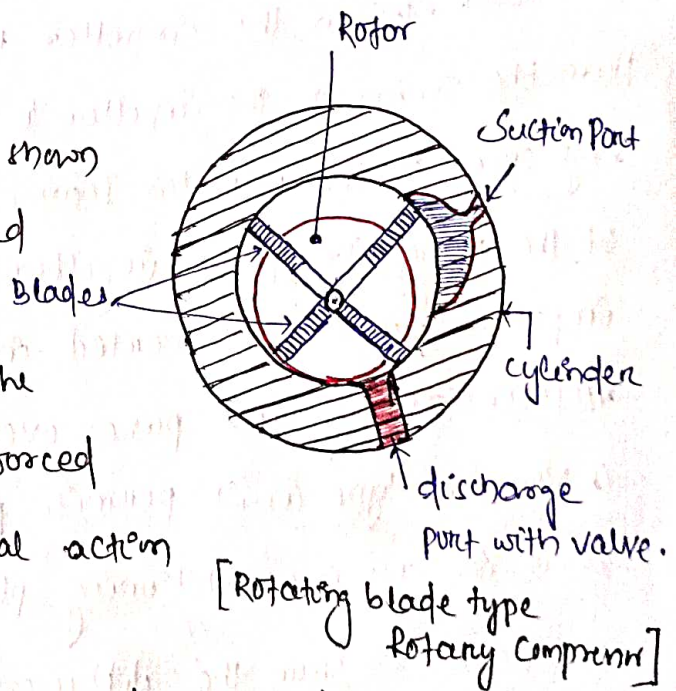 Rotor
Suction Port
shown
ed
Blades
he
cylinder
forced
discharge
port with valve.
al action
[Rotating blade type
Rotary Compressor]